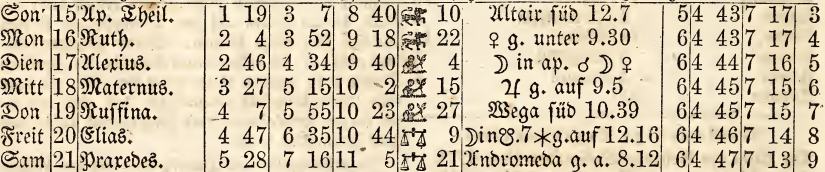 Son 15 Ap. Theil. 1 19 3 7 8 40 ♌ 10 Altair süd 12.7 5 4 43 7 17 3
Mon 16 Ruth. 2 4 3 52 9 18 ♌ 22 ♀ g. unter 9.30 6 4 43 7 17 4
Dien 17 Alexius. 2 46 4 34 9 40 ♍ 4 ☽ in ap. ☌ ☽ ♀ 6 4 44 7 16 5
Mitt 18 Maternus. 3 27 5 15 10 2 ♍ 15 ♃ g. auf 9.5 6 4 45 7 15 6
Don 19 Ruffina. 4 7 5 55 10 23 ♍ 27 Wega süd 10.39 6 4 45 7 15 7
Freit 20 Elias. 4 47 6 35 10 44 ♎ 9 ☽in☋.7*g.auf 12.16 6 4 46 7 14 8
Sam 21 Praxedes. 5 28 7 16 11 5 ♎ 21 Andromeda g. a. 8.12 6 4 47 7 13 9